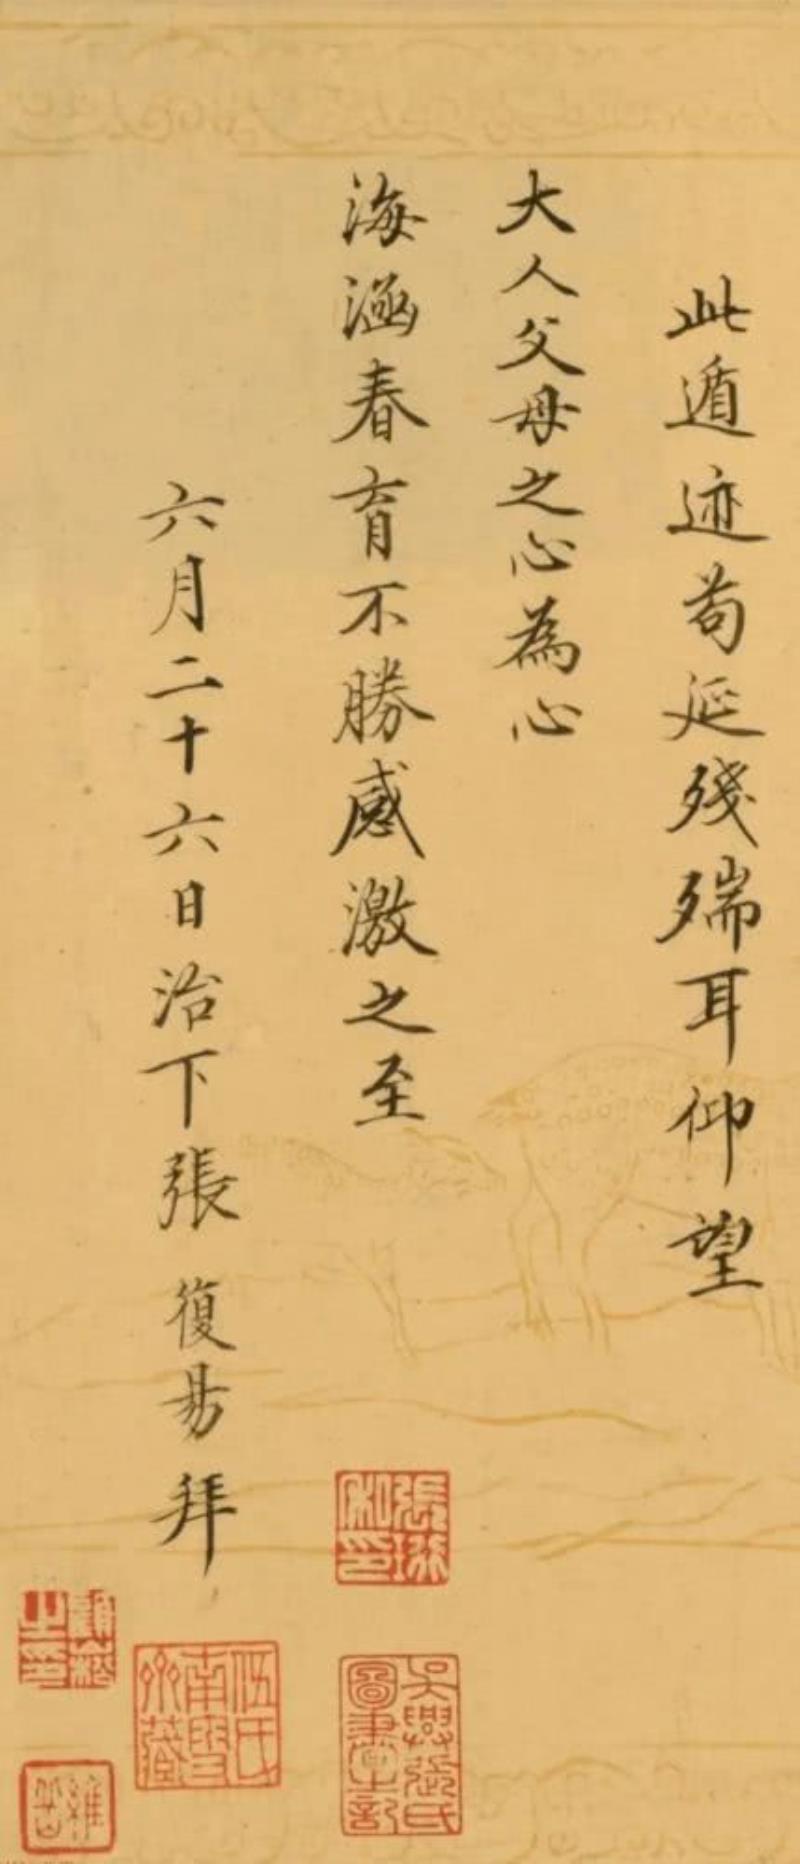 此遁迹苟延殘喘耳仰望
大人父母之心為心
海涵春育不勝感激之至
六月二十六日治下張復易拜
張珩私印
吳興張氏圖書之記
伍氏南雪齋藏